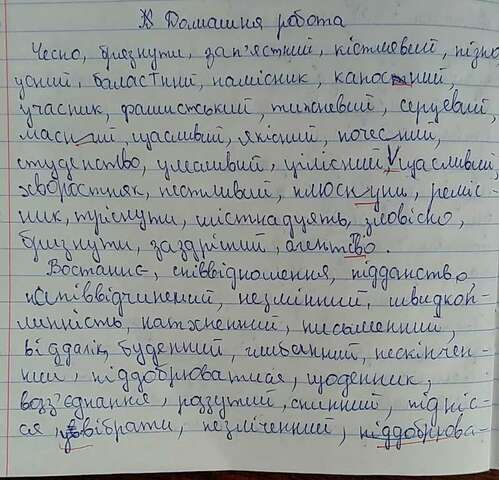 Домашня робота
Чесно, брязнути, зап'ястний, кістлявий, пізно
усний, баластний, намісник, капосний
учасник, фашистський, тижневий, серцевий,
масний, щасливий, якісний, почесний,
студенство, улесливий, цілісний, щасливий,
хворостняк, пестливий, плюснути, реміс-
ник, тріснути, шістнадцять, зловісно,
бризнути, заздрісний, агентство.
Востаннє, співвідношення, підданство
співвідчинений, незмінний, швидкоп-
линність, натхненний, письменний,
віддалік, буденний, нескінчен-
ний, піддобрюватися, щоденник,
возз'єднання, роззутий, спинний, підніс-
ся, ввібрати, незліченний, піддобрюва-